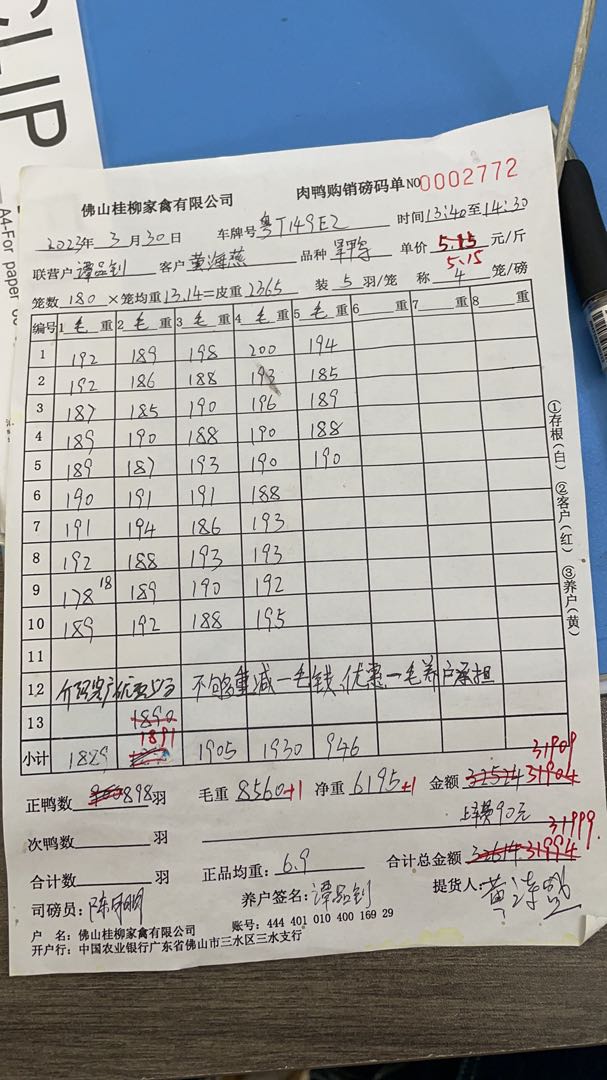 CLIP
A4-For paper
佛山桂柳家禽有限公司 肉鸭购销磅码单 NO 0002772
2023年 3 月 30 日 车牌号 粤T149E2 时间 13:40 至 14:30
联营户 谭品钊 客户 黄海燕 品种 单价 5.15 元/斤
5.15
笼数 180 ×笼均重 13.14 =皮重 2365 装 5 羽/笼 称 4 笼/磅
编号 1 毛 重 2 毛 重 3 毛 重 4 毛 重 5 毛 重 6 重 7 重 8 重
1 192 189 198 200 194
2 192 186 188 193 185
3 187 185 190 196 189
4 189 190 188 190 188
5 189 187 193 190 190
6 190 191 191 188
7 191 194 186 193
8 192 188 193 193
9 178 18 189 190 192
10 189 192 188 195
11
12 不够重减一毛钱,优惠一毛养户承担
13 1890
1891
小计 1829 1905 1930 946
31909
正鸭数 898 羽 毛重 8560+1 净重 6195+1 金额 32524 31904
次鸭数 羽 90元 31999.
合计数 羽 正品均重: 6.9 合计总金额 32614 31994
司磅员: 养户签名: 谭品钊 提货人:
户 名: 佛山桂柳家禽有限公司 账号: 444 401 010 400 169 29
开户行: 中国农业银行广东省佛山市三水区三水支行
①存根(白) ②客户(红) ③养户(黄)